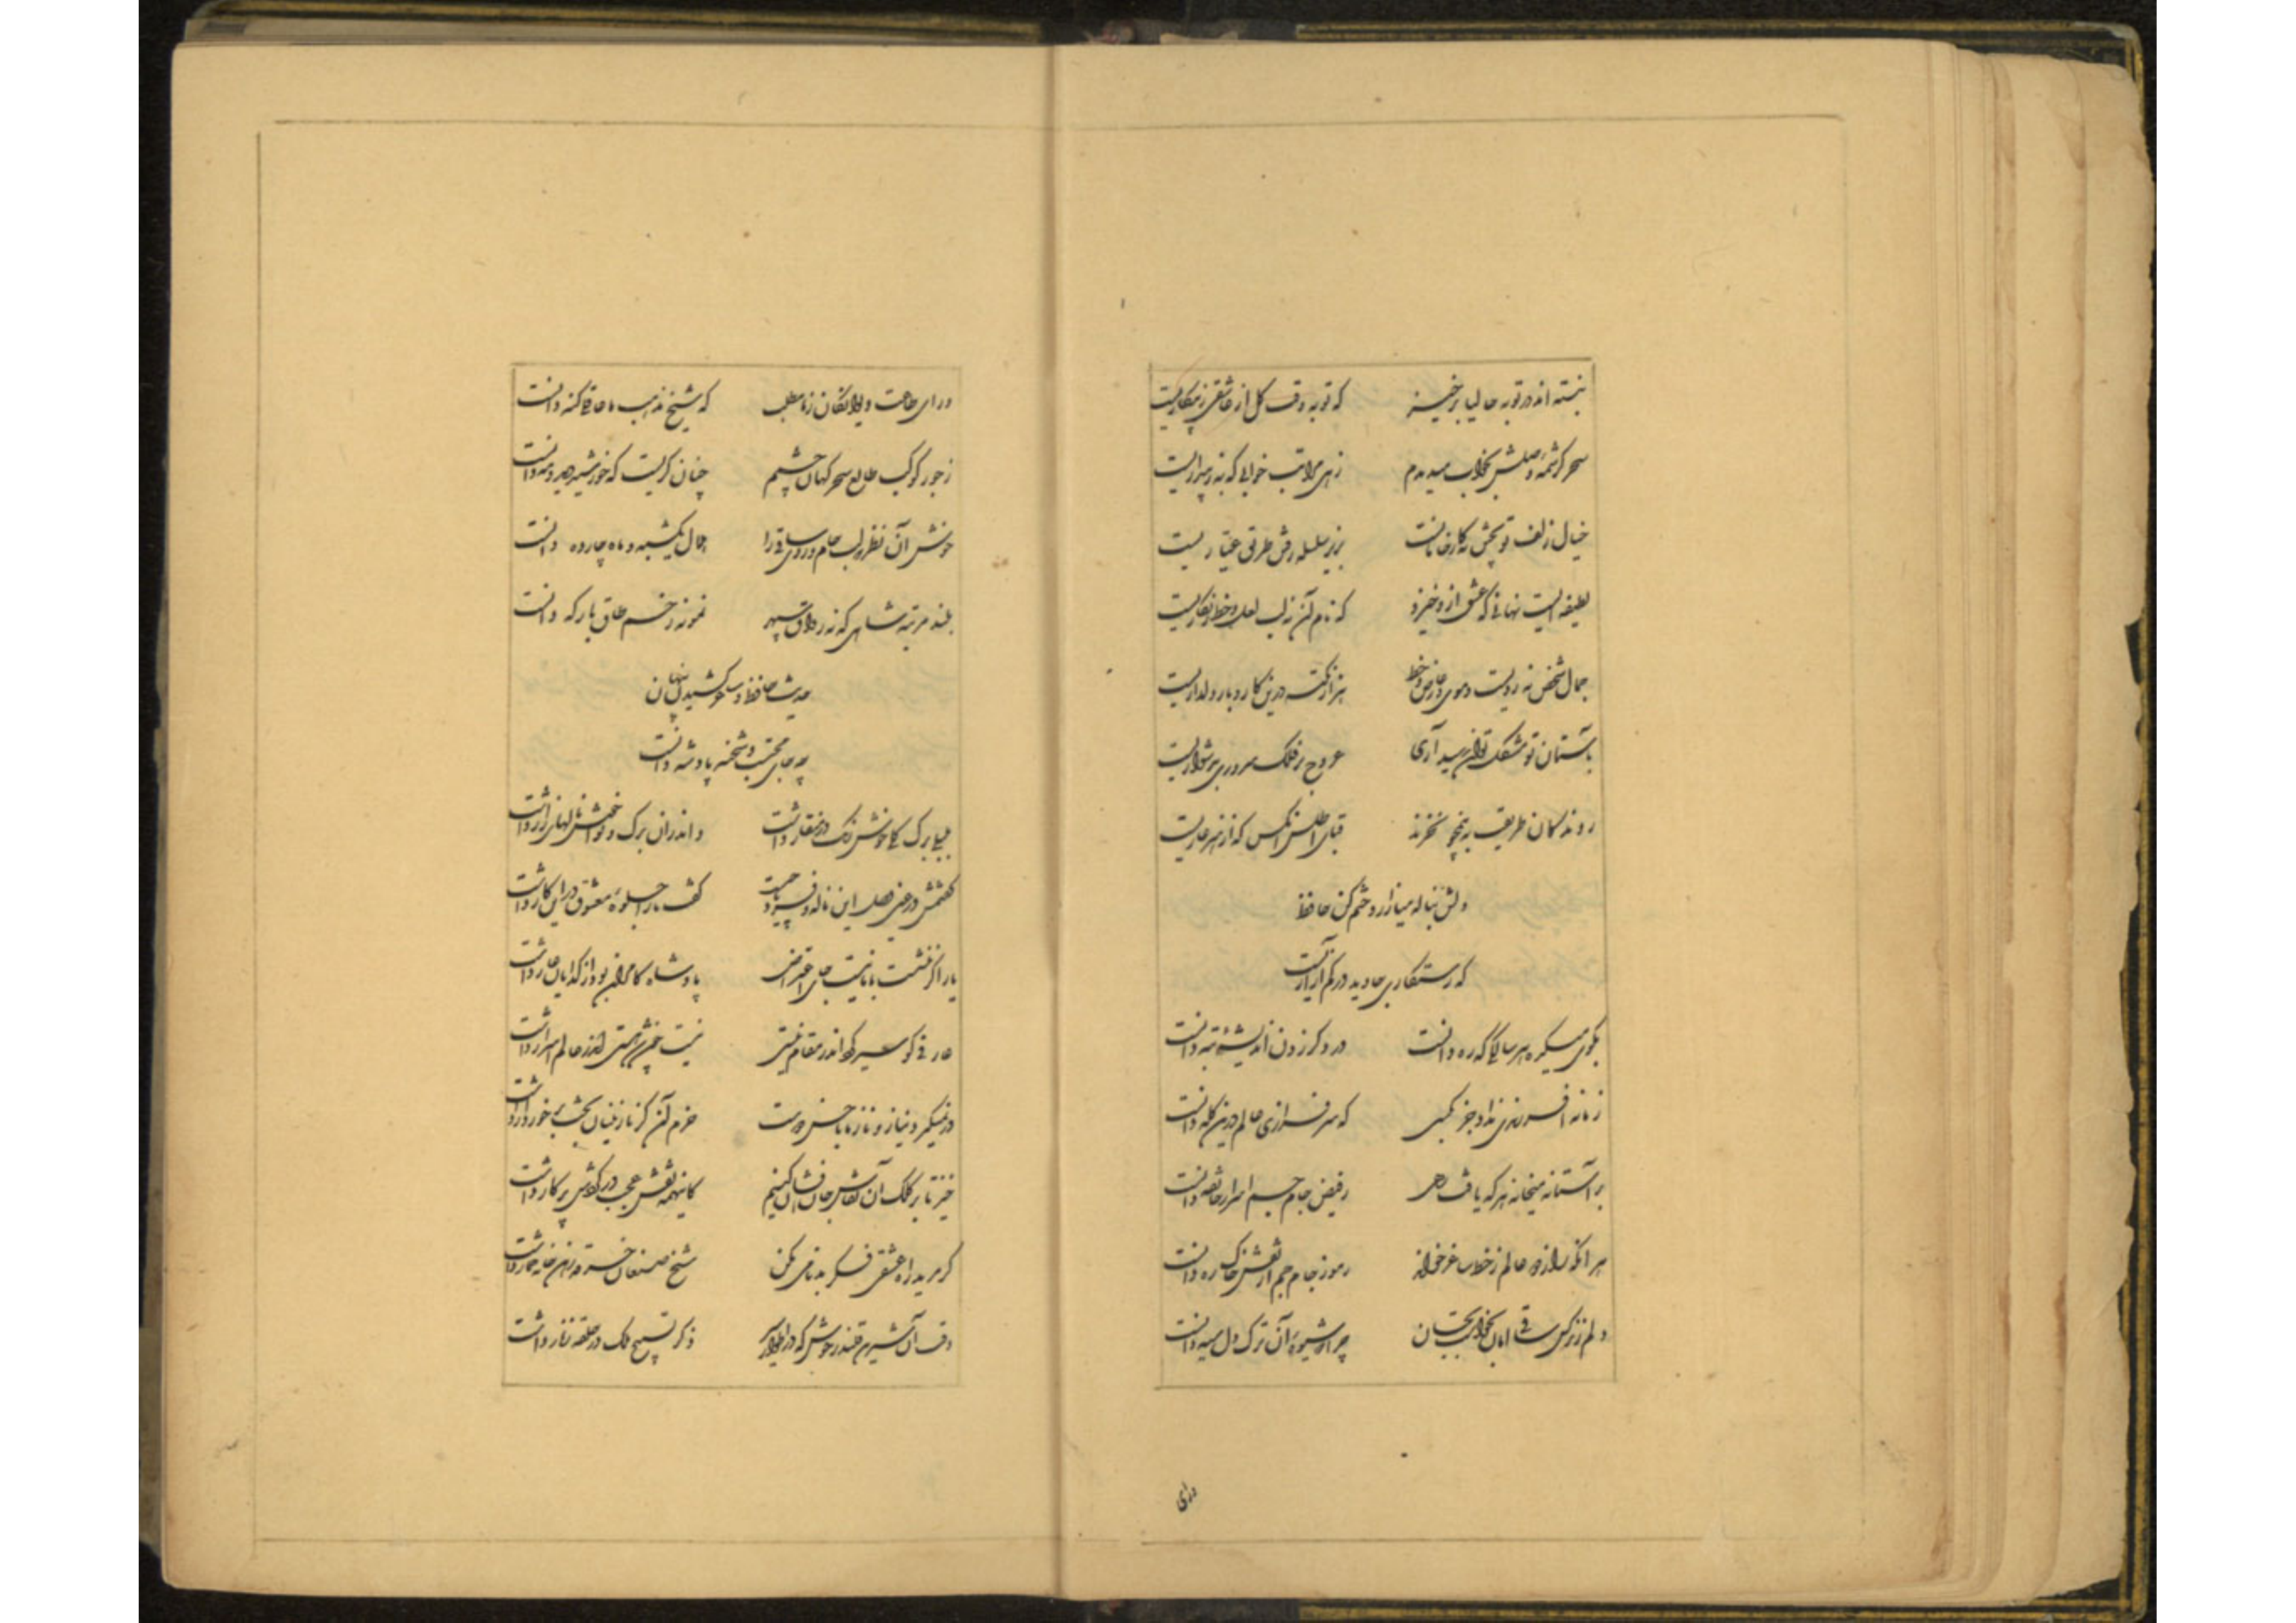 نبسته اند در توبه حالیا برخیز که توبه وقت گل از عاشقی ز بیکاریست
سحر کرشمه وصلش بخواب میدیدم زهی مراتب خوابی که به ز بیداریست
خیال زلف تو پختن نه کار خامانست بزیر سلسله رفتن طریق عیاریست
لطیفه ایست نهانی که عشق ازو خیزد که نام آن نه لب لعل و خط زنگاریست
جمال شخص نه رویست و موی و عارض و خط هزار نکته درین کار و بار دلداریست
بآستان تو مشکل توان رسید آری عروج بر فلک سروری بدشواریست
روندگان طریقت به نیم جو نخرند قبای اطلس آنکس که از هنر عاریست
دلش بناله میازار و ختم کن حافظ
که رستگاری جاوید در کم آزاریست
بکوی میکده هر سالکی که ره دانست در دگر زدن اندیشه تبه دانست
زمانه افسر رندی نداد جز بکسی که سرفرازی عالم درین کله دانست
بر آستانه میخانه هر که یافت رهی ز فیض جام جم اسرار خانقه دانست
هر آنکه راز دو عالم ز خط ساغر خواند رموز جام جم از نقش خاک ره دانست
دلم ز نرگس ساقی امان نخواست بجان چرا که شیوه آن ترک دل سیه دانست
ورای
ورای طاعت دیوانگان ز ما مطلب که شیخ مذهب ما عاقلی گنه دانست
ز جور کوکب طالع سحرگهان چشمم چنان گریست که خورشید دید و مه دانست
خوش آن نظر که لب جام و روی ساقی را هلال یکشبه و ماه چارده دانست
بلند مرتبه شاهی که نه رواق سپهر نمونه ز خم طاق بارگه دانست
حدیث حافظ و ساغر کشیدن پنهان
چه جای محتسب و شحنه پادشه دانست
بلبلی برگ گلی خوش رنگ در منقار داشت و اندران برگ و نوا خوش نالهای زار داشت
گفتمش در عین وصل این ناله و فریاد چیست گفت ما را جلوه معشوق در این کار داشت
یار اگر ننشست با ما نیست جای اعتراض پادشاه کامران بود از گدایان عار داشت
عارفی کو سیر کرد اندر مقام نیستی نیست شد چون مستی اندر عالم اسرار داشت
در نمیگیرد نیاز و ناز ما با حسن دوست خرم آن کز نازنینان بخت برخوردار داشت
خیز تا بر کلک آن نقاش جان افشان کنیم کاینهمه نقش عجب در گردش پرگار داشت
گر مرید راه عشقی فکر بدنامی مکن شیخ صنعان خرقه رهن خانه خمار داشت
وقت آن شیرین قلندر خوش که در اطوار سیر ذکر تسبیح ملک در حلقه زنار داشت